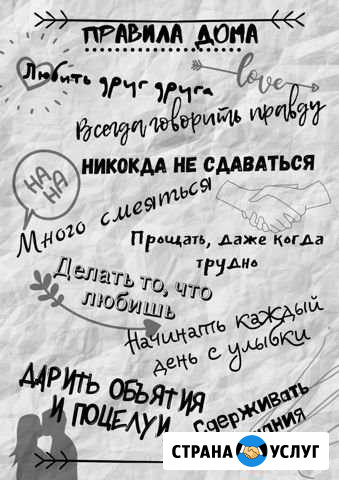 ПРАВИЛА ДОМА
Любить друг друга
love
Всегда говорить правду
НИКОКДА НЕ СДАВАТЬСЯ
HA
HA
Много смеяться
Прощать, даже когда
трудно
Делать то, что
любишь
Начинать каждый
день с улыбки
ДАРИТЬ ОБЪЯТИЯ
И ПОЦЕЛУИ
Сдерживать
СТРАНА УСЛУГ